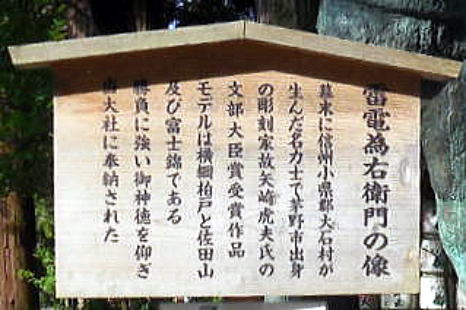 雷電為右衛門の像
幕末に信州小県郡大石村が
生んだ名力士で茅野市出身
の彫刻家故矢崎虎夫氏の
文部大臣賞受賞作品
モデルは横綱柏戸と佐田山
及び富士錦である
勝負に強い御神徳を仰ぎ
当大社に奉納された